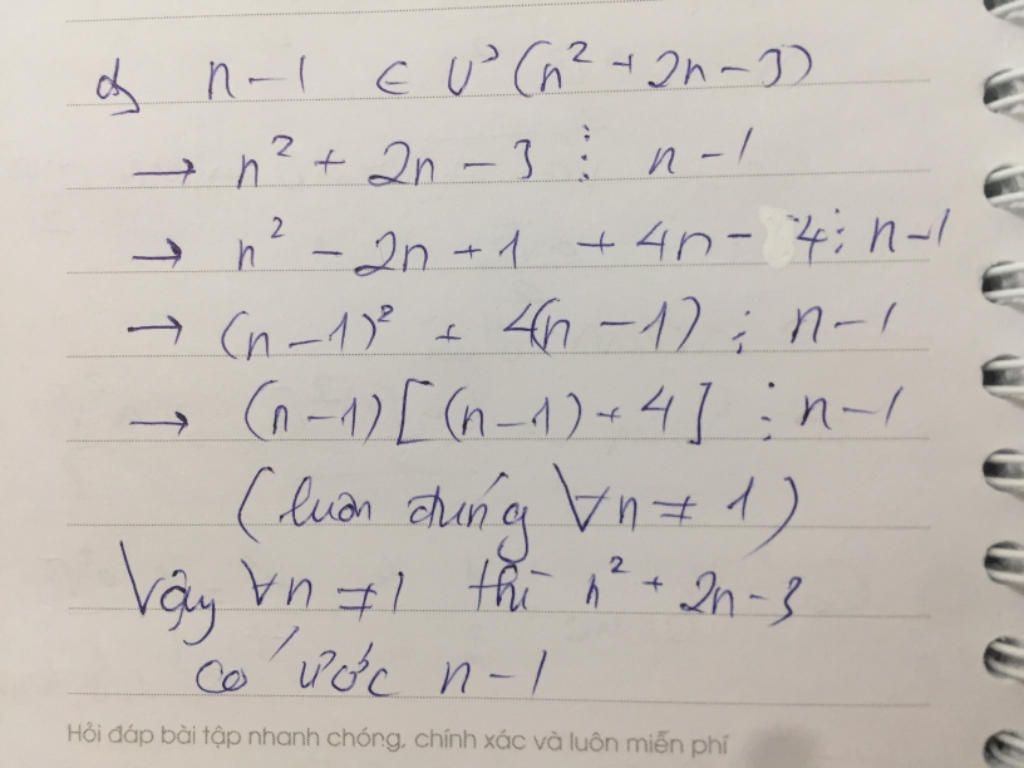 d, n-1 ∈ Ư (n² + 2n - 3)
→ n² + 2n - 3 ⋮ n - 1
→ n² - 2n + 1 + 4n - 4 ⋮ n-1
→ (n-1)² + 4(n - 1) ⋮ n - 1
→ (n-1)[(n-1)+4] ⋮ n-1
(luôn đúng ∀n ≠ 1)
Vậy ∀n ≠ 1 thì n² + 2n - 3
có ước n - 1
Hỏi đáp bài tập nhanh chóng, chính xác và luôn miễn phí